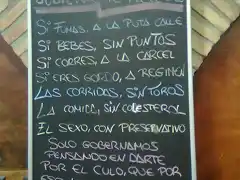 SI FUMAS, A LA PUTA CALLE
SI BEBES, SIN PUNTOS
SI CORRES, A LA CARCEL
SI ERES GORDO, A REGIMEN
LAS CORRIDAS, SIN TOROS
LA COMIDA, SIN COLESTEROL
EL SEXO, CON PRESERVATIVO
SOLO GOBERNAMOS
PENSANDO EN DARTE
POR EL CULO, QUE POR